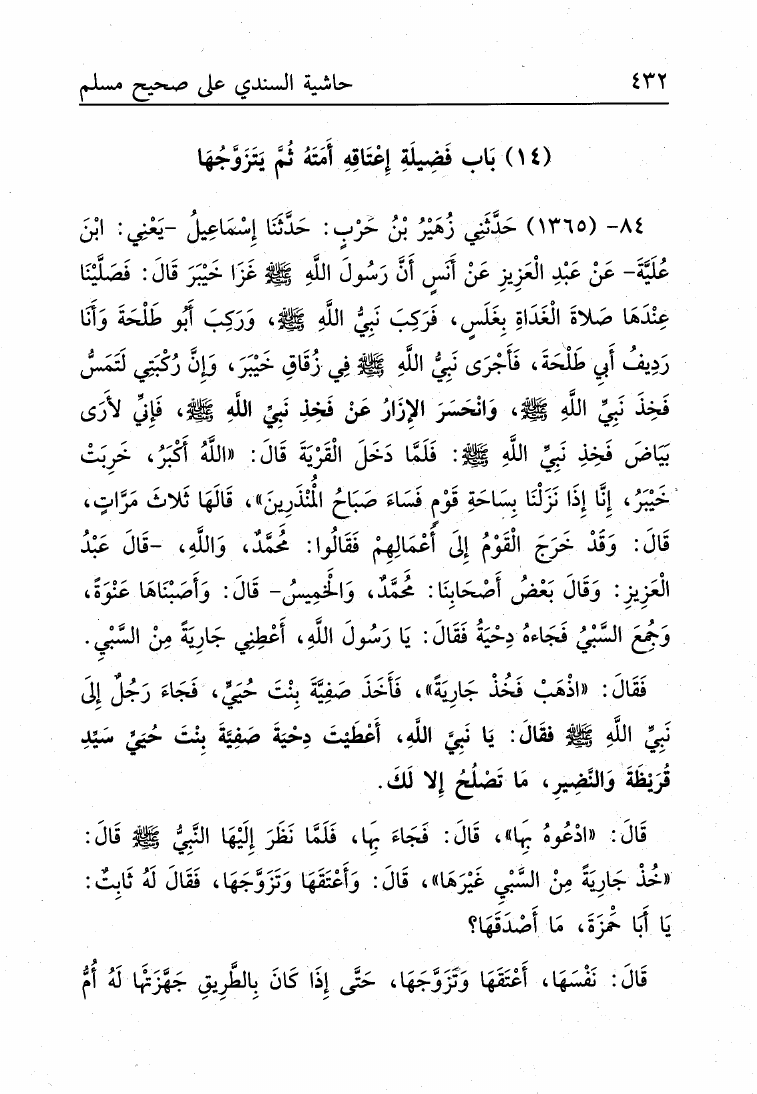 ٤٣٢ حاشية السندي على صحيح مسلم
(١٤) بَاب فَضِيلَةِ إِعْتَاقِهِ أَمَتَهُ ثُمَّ يَتَزَوَّجُهَا
٨٤- (١٣٦٥) حَدَّثَنِي زُهَيْرُ بْنُ حَرْبٍ: حَدَّثَنَا إِسْمَاعِيلُ -يَعْنِي: ابْنَ
عُلَيَّةَ- عَنْ عَبْدِ الْعَزِيزِ عَنْ أَنَسٍ أَنَّ رَسُولَ اللَّهِ ﷺ غَزَا خَيْبَرَ قَالَ: فَصَلَّيْنَا
عِنْدَهَا صَلاَةَ الْغَدَاةِ بِغَلَسٍ، فَرَكِبَ نَبِيُّ اللَّهِ ﷺ، وَرَكِبَ أَبُو طَلْحَةَ وَأَنَا
رَدِيفُ أَبِي طَلْحَةَ، فَأَجْرَى نَبِيُّ اللَّهِ ﷺ فِي زُقَاقِ خَيْبَرَ، وَإِنَّ رُكْبَتِي لَتَمَسُّ
فَخِذَ نَبِيِّ اللَّهِ ﷺ، وَانْحَسَرَ الإِزَارُ عَنْ فَخِذِ نَبِيِّ اللَّهِ ﷺ، فَإِنِّي لأَرَى
بَيَاضَ فَخِذِ نَبِيِّ اللَّهِ ﷺ: فَلَمَّا دَخَلَ الْقَرْيَةَ قَالَ: «اللَّهُ أَكْبَرُ، خَرِبَتْ
خَيْبَرُ، إِنَّا إِذَا نَزَلْنَا بِسَاحَةِ قَوْمٍ فَسَاءَ صَبَاحُ الْمُنْذَرِينَ»، قَالَهَا ثَلاثَ مَرَّاتٍ،
قَالَ: وَقَدْ خَرَجَ الْقَوْمُ إِلَى أَعْمَالِهِمْ فَقَالُوا: مُحَمَّدٌ، وَاللَّهِ، -قَالَ عَبْدُ
الْعَزِيزِ: وَقَالَ بَعْضُ أَصْحَابِنَا: مُحَمَّدٌ، وَالْخَمِيسُ- قَالَ: وَأَصَبْنَاهَا عَنْوَةً،
وَجُمِعَ السَّبْيُ فَجَاءهُ دِحْيَةُ فَقَالَ: يَا رَسُولَ اللَّهِ، أَعْطِنِي جَارِيَةً مِنْ السَّبْيِ.
فَقَالَ: «اذْهَبْ فَخُذْ جَارِيَةً»، فَأَخَذَ صَفِيَّةَ بِنْتَ حُيَيٍّ، فَجَاءَ رَجُلٌ إِلَى
نَبِيِّ اللَّهِ ﷺ فقَالَ: يَا نَبِيَّ اللَّهِ، أَعْطَيْتَ دِحْيَةَ صَفِيَّةَ بِنْتَ حُيَيٍّ سَيِّدِ
قُرَيْظَةَ وَالنَّضِيرِ، مَا تَصْلُحُ إِلا لَكَ.
قَالَ: «ادْعُوهُ بِهَا»، قَالَ: فَجَاءَ بِهَا، فَلَمَّا نَظَرَ إِلَيْهَا النَّبِيُّ ﷺ قَالَ:
«خُذْ جَارِيَةً مِنْ السَّبْيِ غَيْرَهَا»، قَالَ: وَأَعْتَقَهَا وَتَزَوَّجَهَا، فَقَالَ لَهُ ثَابِتٌ:
يَا أَبَا حَمْزَةَ، مَا أَصْدَقَهَا؟
قَالَ: نَفْسَهَا، أَعْتَقَهَا وَتَزَوَّجَهَا، حَتَّى إِذَا كَانَ بِالطَّرِيقِ جَهَّزَتْهَا لَهُ أُمُّ